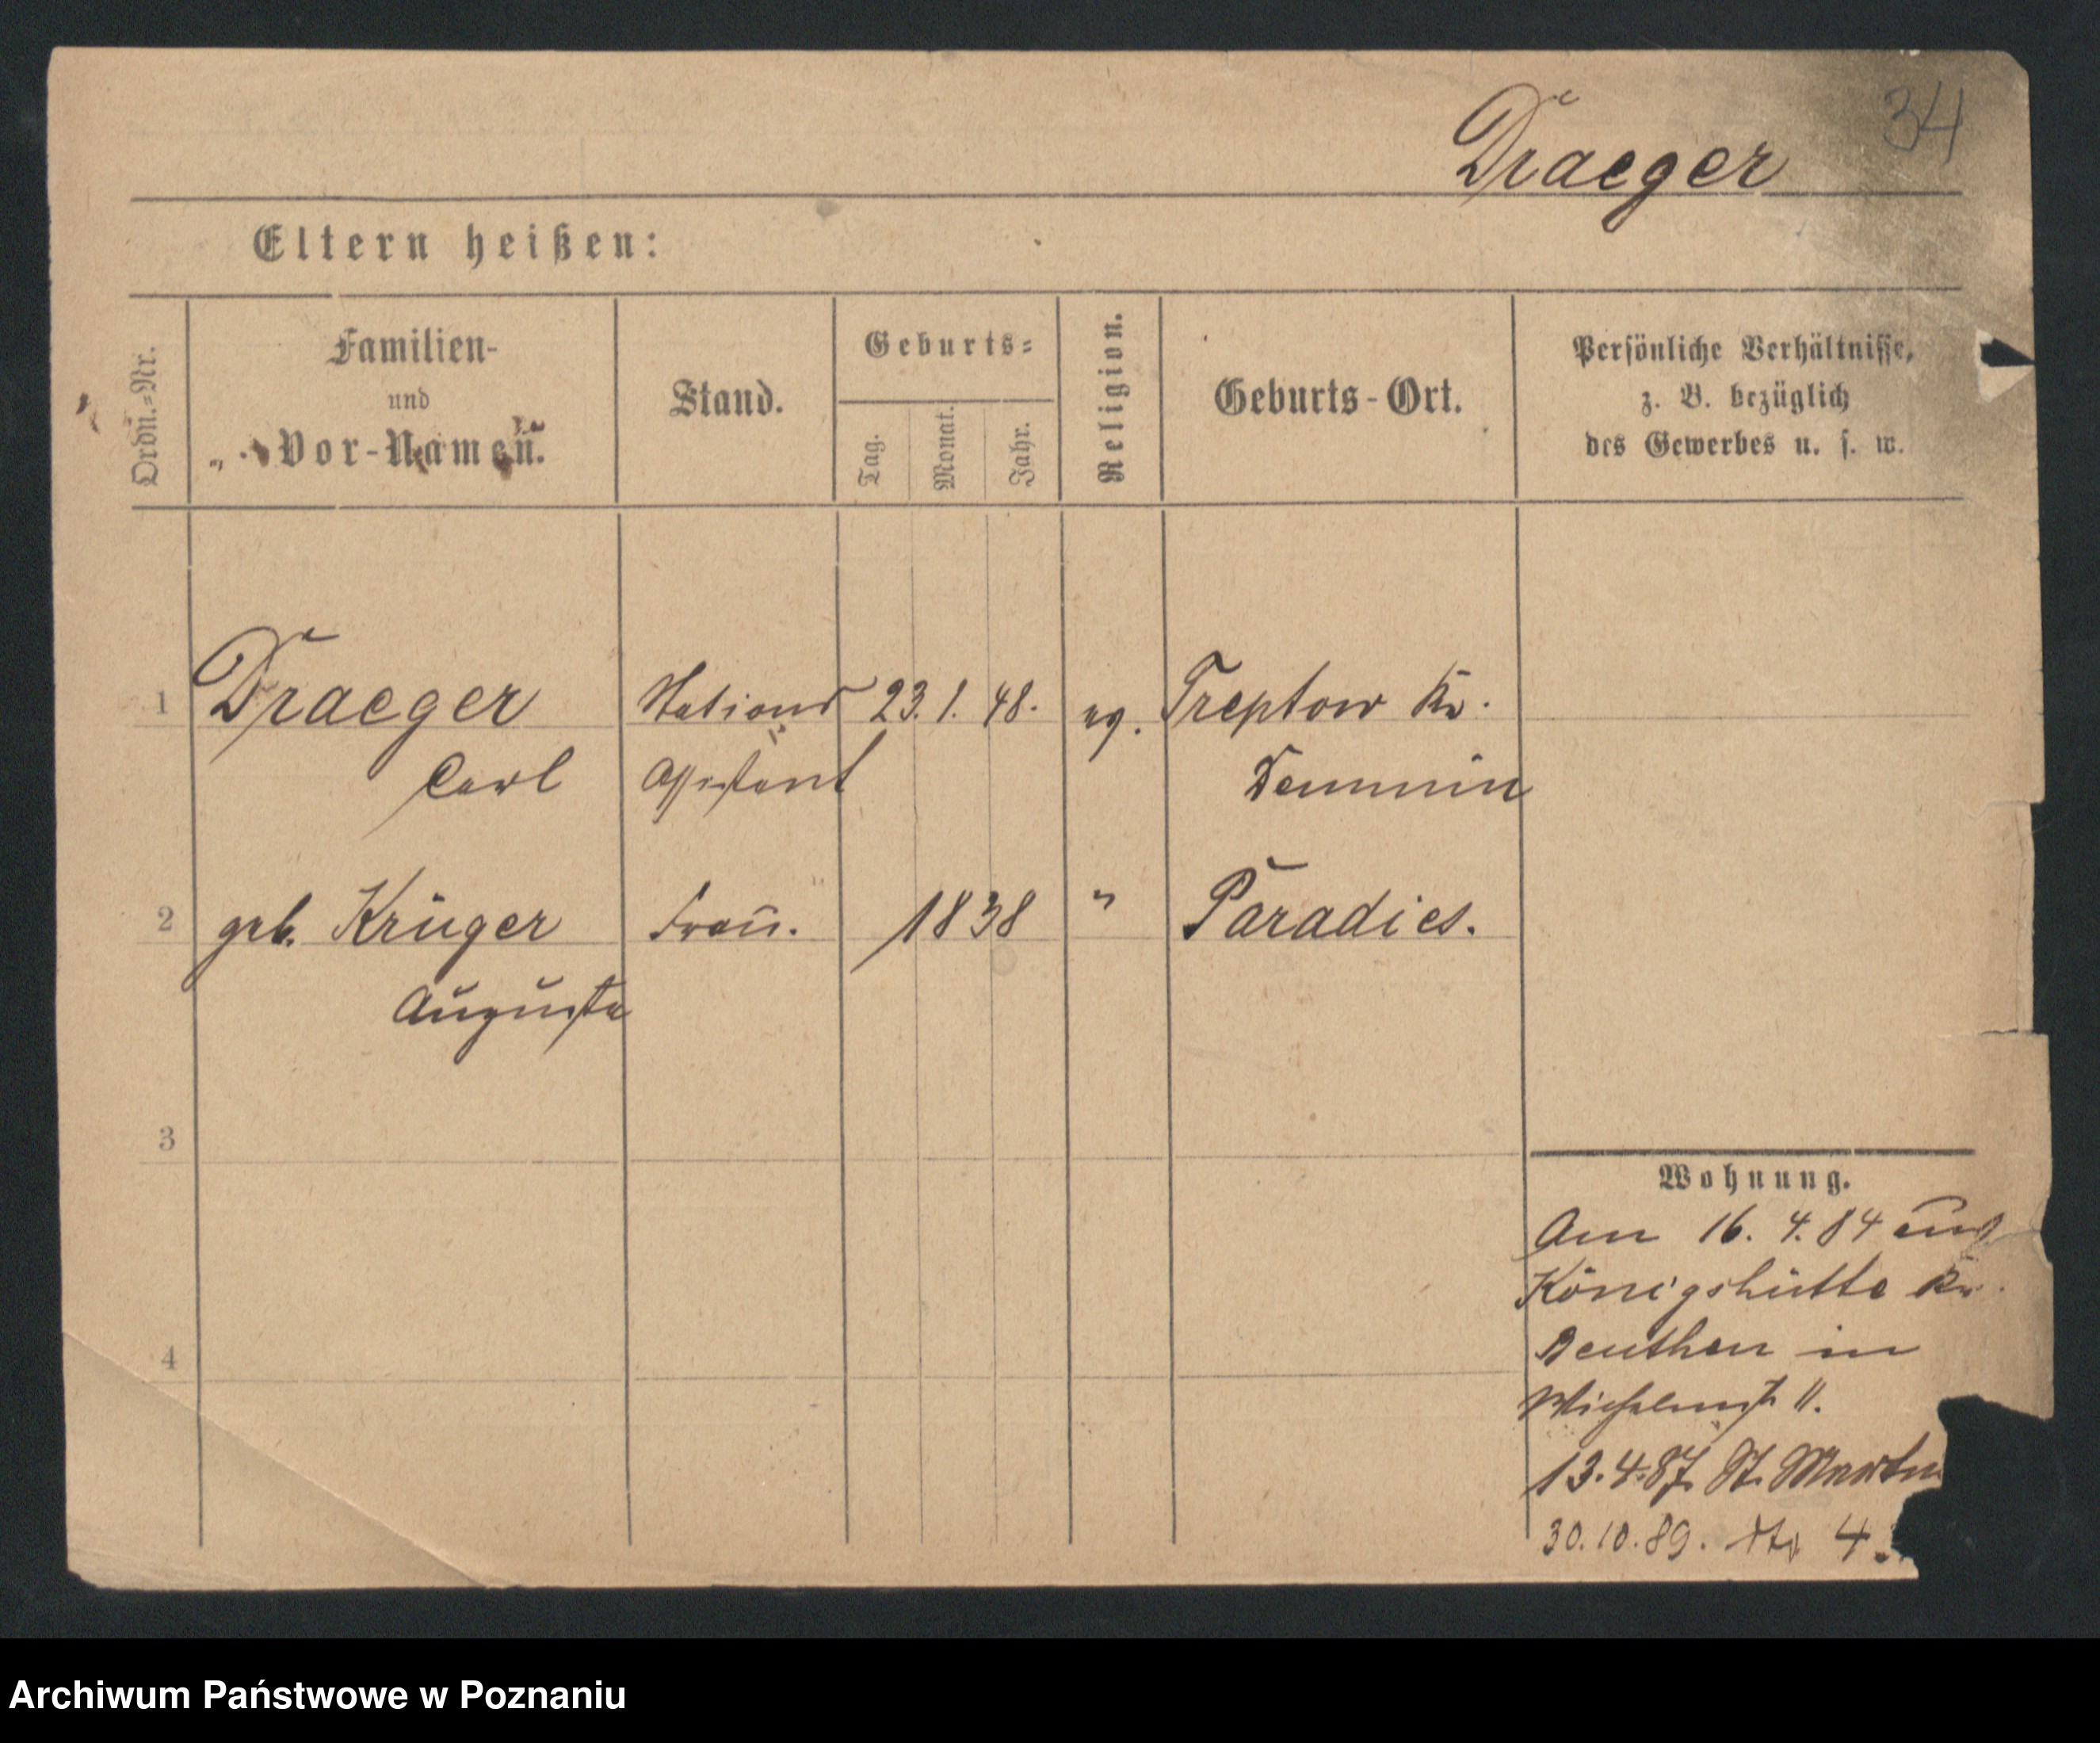 34
Draeger
Eltern heißen:
Ordn.=Nr.
Familien-
und
Vor-Namen.
Stand.
Geburts=
Tag.
Monat.
Jahr.
Religion.
Geburts-Ort.
Persönliche Verhältnisse,
z. B. bezüglich
des Gewerbes u. s. w.
1 Draeger Stations 23. 1. 48. ev. Treptow Kr.
Carl Assistent Demmin
2 geb. Krüger Frau. 1838 " Paradies.
Auguste
3
4
Wohnung.
Am 16. 4. 84 aus
Königshütte Kr.
Beuthen in
11.
13.4.87. St. Martin
30.10.89. 4
Archiwum Państwowe w Poznaniu